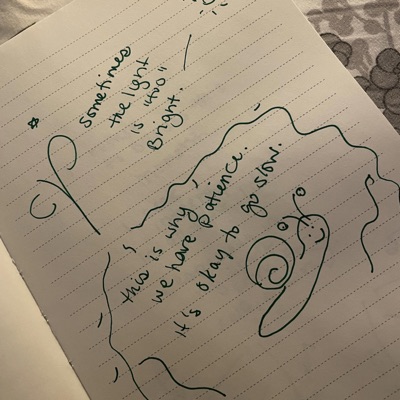 Sometimes
the light
is "too"
Bright.
this is why
we have patience.
it's okay to go slow.